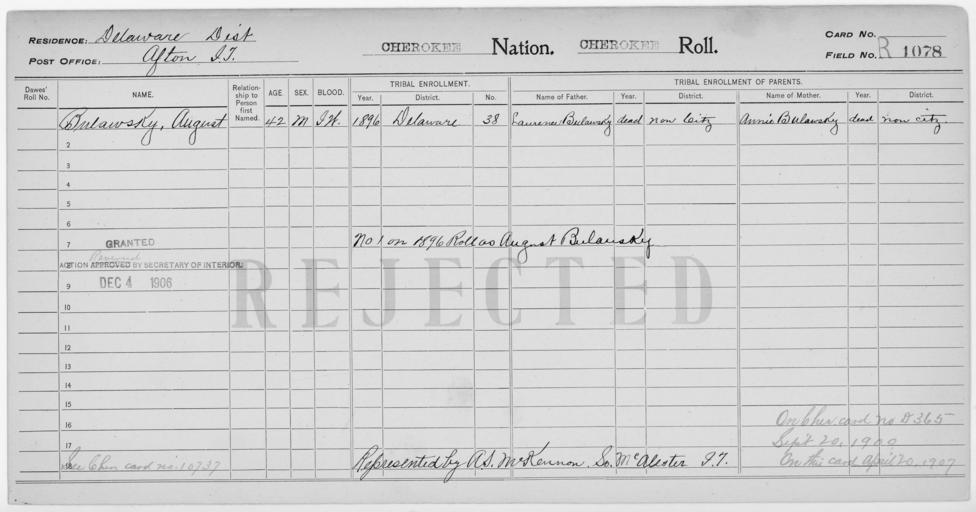 RESIDENCE: Delaware Dist
POST OFFICE: Afton I.T.
CHEROKEE Nation. CHEROKEE Roll.
CARD NO.
FIELD NO. R 1078
Dawes' Roll No. NAME. Relationship to Person first Named. AGE. SEX. BLOOD. TRIBAL ENROLLMENT. Year. District. No. TRIBAL ENROLLMENT OF PARENTS. Name of Father. Year. District. Name of Mother. Year. District.
Bulawsky, August 42 M I.W. 1896 Delaware 38 Laurence Bulawsky dead non Citz Annie Bulawsky dead non citz
2
3
4
5
6
7 GRANTED No 1 on 1896 Roll as August Bulausky
Reversed
8 ACTION APPROVED BY SECRETARY OF INTERIOR.
9 DEC 4 1906
REJECTED
10
11
12
13
14
15
16 On Cher. card no D 365
17 Sept 20, 1900
18 See Cher card no. 10737 Represented by A.S. McKennon, So. McAlester I.T. On this card April 20, 1907